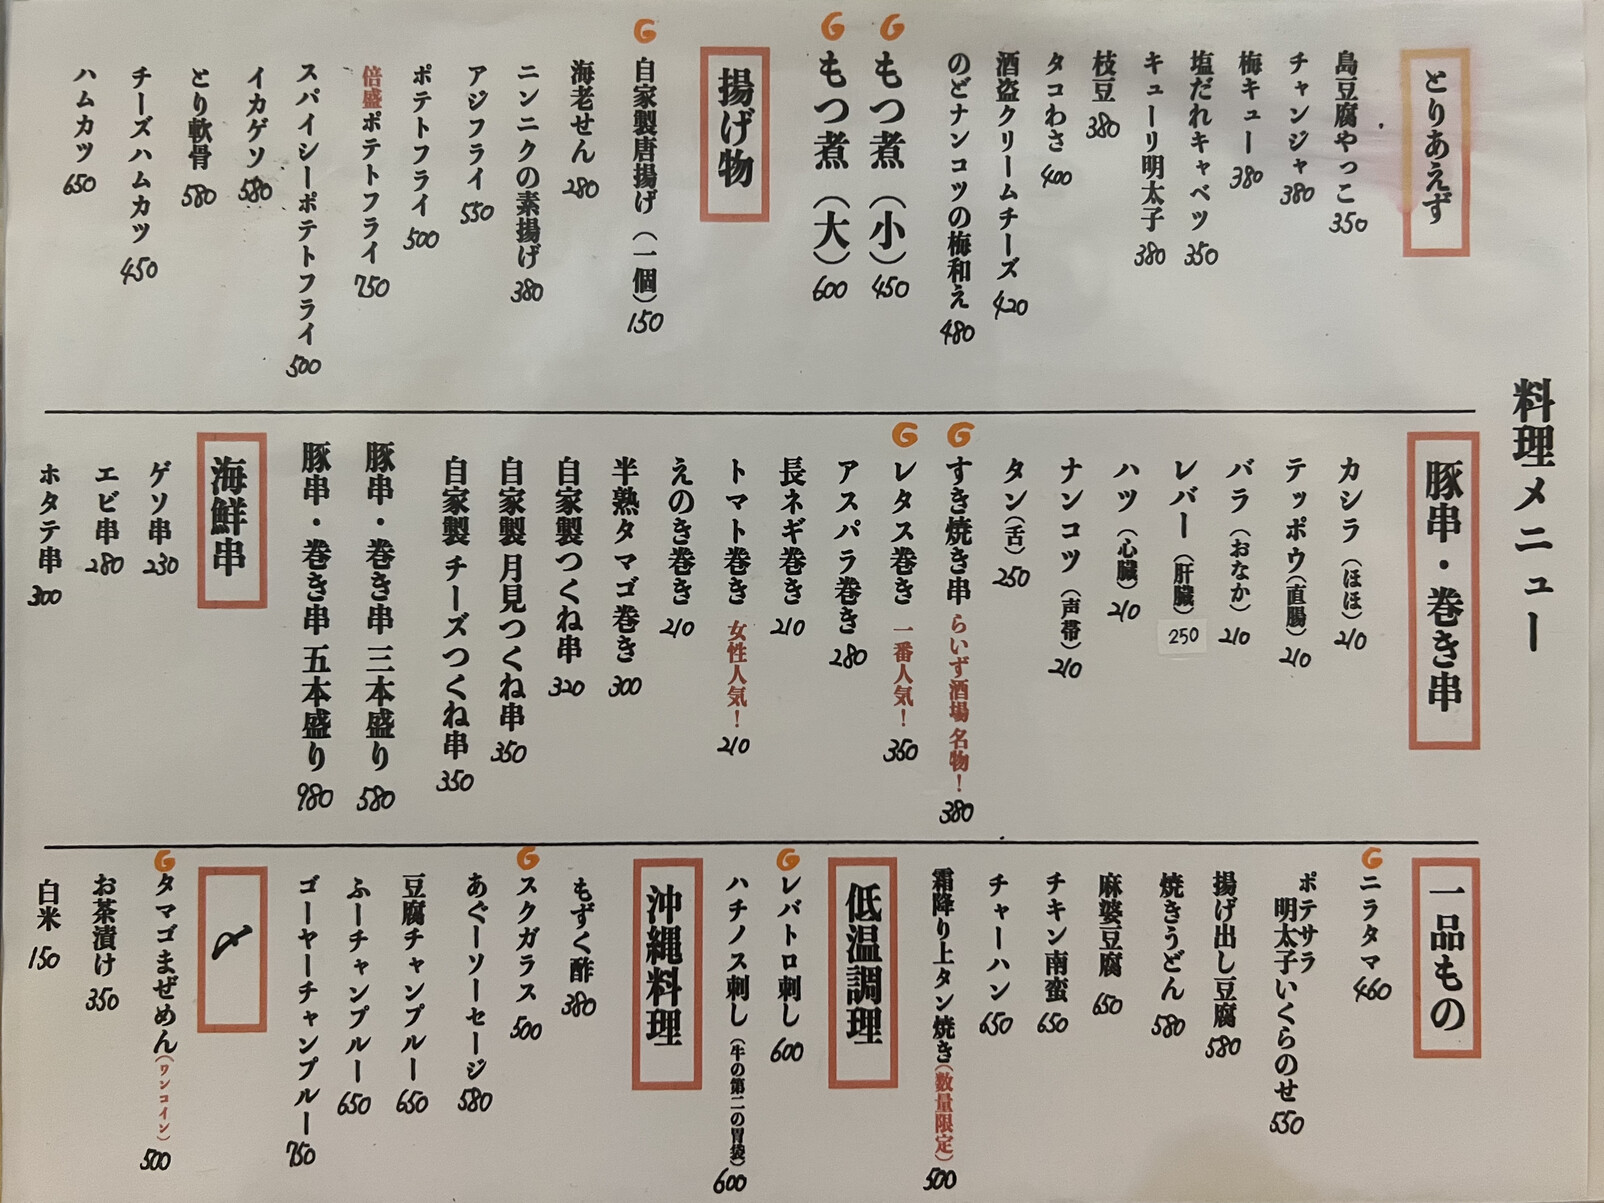 料理メニュー
とりあえず
島豆腐やっこ 350
チャンジャ 380
梅キュー 380
塩だれキャベツ 350
キューリ明太子 380
枝豆 380
タコわさ 400
酒盗クリームチーズ 420
のどナンコツの梅和え 480
G もつ煮（小） 450
G もつ煮（大） 600
揚げ物
G 自家製唐揚げ（一個） 150
海老せん 280
ニンニクの素揚げ 380
アジフライ 550
ポテトフライ 500
倍盛ポテトフライ 750
スパイシーポテトフライ 500
イカゲソ 580
とり軟骨 580
チーズハムカツ 450
ハムカツ 650
豚串・巻き串
カシラ（ほほ） 210
テッポウ（直腸） 210
バラ（おなか） 210
レバー（肝臓） 250
ハツ（心臓） 210
ナンコツ（声帯） 210
タン（舌） 250
G すき焼き串 らいず酒場 名物！ 380
G レタス巻き 一番人気！ 350
アスパラ巻き 280
長ネギ巻き 210
トマト巻き 女性人気！ 210
えのき巻き 210
半熟タマゴ巻き 300
自家製つくね串 320
自家製 月見つくね串 350
自家製 チーズつくね串 350
豚串・巻き串 三本盛り 580
豚串・巻き串 五本盛り 980
海鮮串
ゲソ串 230
エビ串 280
ホタテ串 300
一品もの
G ニラタマ 460
ポテサラ
明太子いくらのせ 550
揚げ出し豆腐 580
焼きうどん 580
麻婆豆腐 650
チキン南蛮 650
チャーハン 650
霜降り上タン焼き（数量限定） 500
低温調理
G レバトロ刺し 600
ハチノス刺し（牛の第二の胃袋） 600
沖縄料理
もずく酢 380
G スクガラス 500
あぐーソーセージ 580
豆腐チャンプルー 650
ふーチャンプルー 650
ゴーヤーチャンプルー 750
〆
G タマゴまぜめん（ワンコイン） 500
お茶漬け 350
白米 150